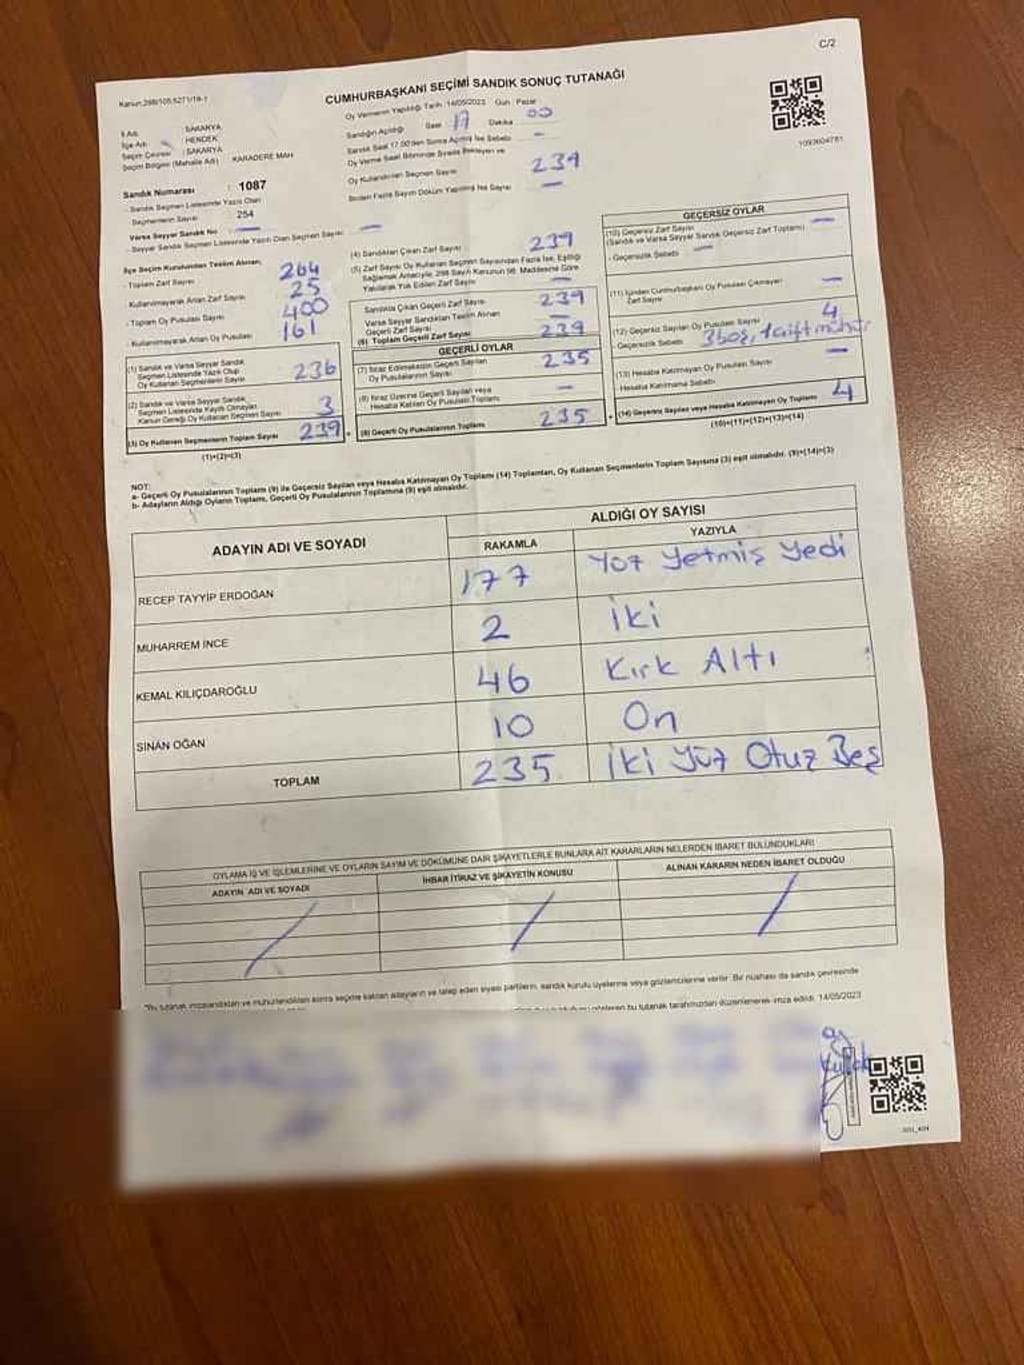 C/2
Kanun:298/105,5271/18-1
CUMHURBAŞKANI SEÇİMİ SANDIK SONUÇ TUTANAĞI
Oy Vermenin Yapıldığı Tarih :14/05/2023 Gün : Pazar
İl Adı : SAKARYA
İlçe Adı : HENDEK
Seçim Çevresi : SAKARYA
Seçim Bölgesi (Mahalle Adı) : KARADERE MAH
Sandığın Açıldığı Saat 17 Dakika 00
Sandık Saat 17.00'den Sonra Açılmış İse Sebebi : —
Oy Verme Saati Bitiminde Sırada Bekleyen ve
Oy Kullandırılan Seçmen Sayısı 239
Birden Fazla Sayım Döküm Yapılmış İse Sayısı —
1093604781
Sandık Numarası : 1087
- Sandık Seçmen Listesinde Yazılı Olan
Seçmenlerin Sayısı : 254
Varsa Seyyar Sandık No : —
- Seyyar Sandık Seçmen Listesinde Yazılı Olan Seçmen Sayısı : —
İlçe Seçim Kurulundan Teslim Alınan;
- Toplam Zarf Sayısı 264
- Kullanılmayarak Artan Zarf Sayısı 25
- Toplam Oy Pusulası Sayısı 400
- Kullanılmayarak Artan Oy Pusulası 161
(1) Sandık ve Varsa Seyyar Sandık
Seçmen Listesinde Yazılı Olup
Oy Kullanan Seçmenlerin Sayısı 236
(2) Sandık ve Varsa Seyyar Sandık
Seçmen Listesinde Kayıtlı Olmayan
Kanun Gereği Oy Kullanan Seçmen Sayısı 3
(3) Oy Kullanan Seçmenlerin Toplam Sayısı 239
(1)+(2)=(3)
(4) Sandıktan Çıkan Zarf Sayısı 239
(5) Zarf Sayısı Oy Kullanan Seçmen Sayısından Fazla İse, Eşitliği
Sağlamak Amacıyla, 298 Sayılı Kanunun 98. Maddesine Göre
Yakılarak Yok Edilen Zarf Sayısı —
Sandıkta Çıkan Geçerli Zarf Sayısı 239
Varsa Seyyar Sandıktan Teslim Alınan
Geçerli Zarf Sayısı —
(6) Toplam Geçerli Zarf Sayısı 239
GEÇERLİ OYLAR
(7) İtiraz Edilmeksizin Geçerli Sayılan
Oy Pusulalarının Sayısı 235
(8) İtiraz Üzerine Geçerli Sayılan veya
Hesaba Katılan Oy Pusulaları Toplamı —
(9) Geçerli Oy Pusulalarının Toplamı 235
GEÇERSİZ OYLAR
(10) Geçersiz Zarf Sayısı
(Sandık ve Varsa Seyyar Sandık Geçersiz Zarf Toplamı) —
- Geçersizlik Sebebi —
(11) İçinden Cumhurbaşkanı Oy Pusulası Çıkmayan
Zarf Sayısı —
(12) Geçersiz Sayılan Oy Pusulası Sayısı 4
- Geçersizlik Sebebi 3 boş, 1 çift mühür
(13) Hesaba Katılmayan Oy Pusulası Sayısı —
- Hesaba Katılmama Sebebi
(14) Geçersiz Sayılan veya Hesaba Katılmayan Oy Toplamı 4
(10)+(11)+(12)+(13)=(14)
NOT:
a- Geçerli Oy Pusulalarının Toplamı (9) ile Geçersiz Sayılan veya Hesaba Katılmayan Oy Toplamı (14) Toplamları, Oy Kullanan Seçmenlerin Toplam Sayısına (3) eşit olmalıdır. (9)+(14)=(3)
b- Adayların Aldığı Oyların Toplamı, Geçerli Oy Pusulalarının Toplamına (9) eşit olmalıdır.
ADAYIN ADI VE SOYADI
ALDIĞI OY SAYISI
RAKAMLA YAZIYLA
RECEP TAYYİP ERDOĞAN 177 Yüz Yetmiş Yedi
MUHARREM İNCE 2 İki
KEMAL KILIÇDAROĞLU 46 Kırk Altı
SİNAN OĞAN 10 On
TOPLAM 235 İki Yüz Otuz Beş
OYLAMA İŞ VE İŞLEMLERİNE VE OYLARIN SAYIM VE DÖKÜMÜNE DAİR ŞİKAYETLERLE BUNLARA AİT KARARLARIN NELERDEN İBARET BULUNDUKLARI
ADAYIN ADI VE SOYADI İHBAR İTİRAZ VE ŞİKAYETİN KONUSU ALINAN KARARIN NEDEN İBARET OLDUĞU
"Bu tutanak imzalandıktan ve mühürlendikten sonra seçime katılan adayların ve talep eden siyasi partilerin, sandık kurulu üyelerine veya gözlemcilerine verilir. Bir nüshası da sandık çevresinde
gösteren bu tutanak tarafımızdan düzenlenerek imza edildi. 14/05/2023